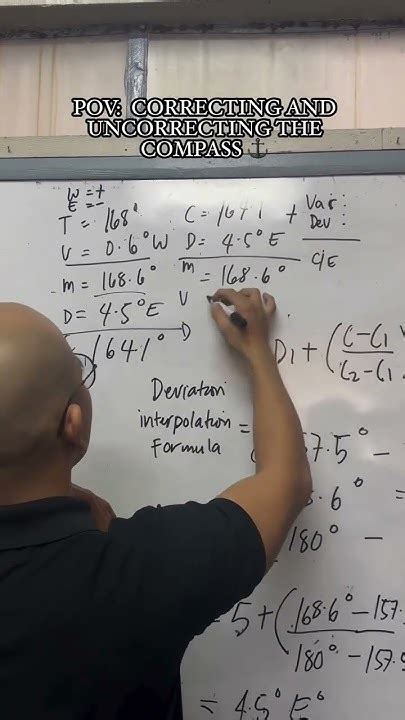 POV: CORRECTING AND
UNCORRECTING THE
COMPASS ⚓
W = +
E = -
T = 168°
V = 0.6° W
m = 168.6°
D = 4.5° E
164.1°
C = 164.1
D = 4.5° E
m = 168.6°
V
D
+ Var:
Dev:
C/E
Deviation
interpolation =
Formula
D1 + (C-C1
C2-C1
7.5° -
.6° =
180° -
= 5 + (168.6° - 157.
180° - 157.5
= 4.5° E°